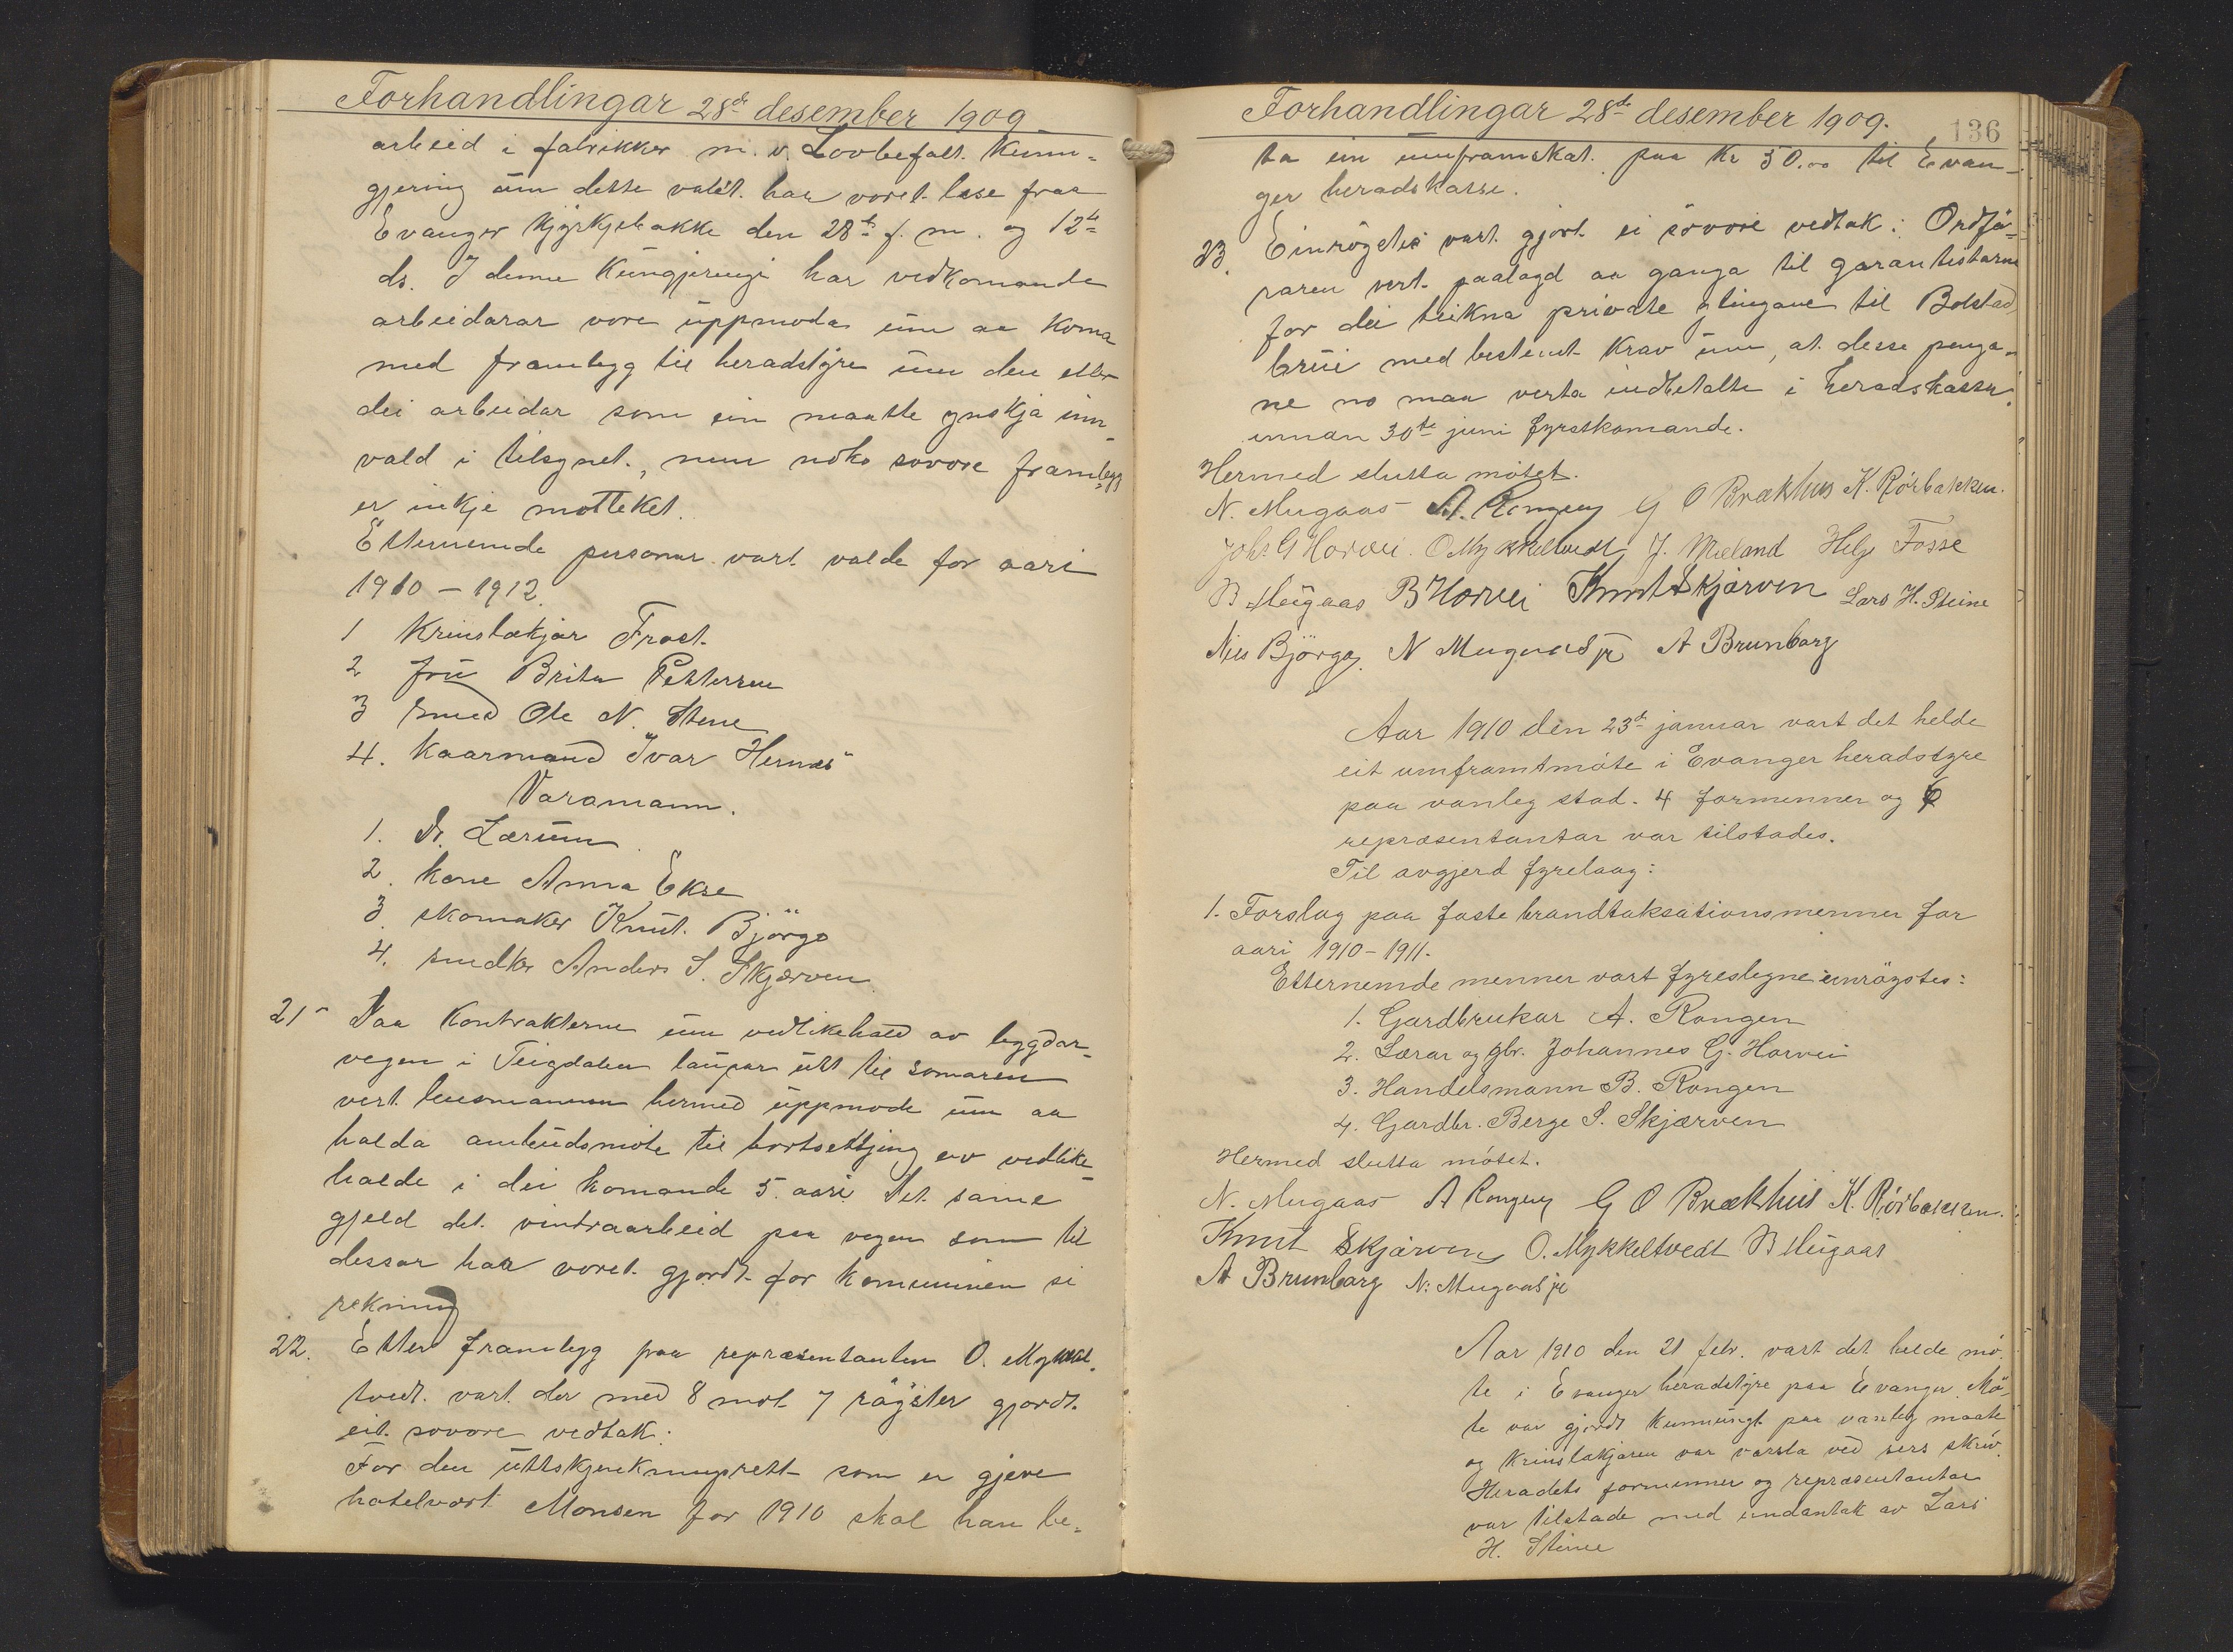 Forhandlingar 28de desember 1909
arbeid i fabrikker m. v. Lovbefalt. kunn-
gjering um dette valet. har voret lese fraa
Evanger kjyrkjebakke den 28de f. m. og 12te
ds. I denne kungjeringi har vedkomande
arbeidarar vore uppmoda um aa koma
med framlegg til heradstyre um den eller
dei arbeidar som ein maatte ynskja inn-
vald i tilsynet., men noko sovore framlegg
er inkje motteket.
Etternemde personar vart valde for aari
1910 – 1912.
1 Krinslækjar Frost.
2 fru Brita Pettersen
3 smed Ole N. Stene
4. Kaarmand Ivar Hernes
Varamann.
1. Dr. Lærum
2. kone Anna Ekse
3. skomaker Knut. Björgo
4. snedker Anders S. Skjærven
21 Daa kontrakterne um vedlikehald av bygdar-
vegen i Teigdalen laupar utt til somaren
vert lensmannen hermed uppmode um aa
halda anbudsmöte til bortsettjing av vedlike-
halde i dei komande 5. aari. Det same
gjeld det. vintraarbeid paa vegen som til
dessar har voret. gjordt. for kommunen si
rekning
22. Etter framlegg paa repræsentanten O. Mykkel-
tvedt. vart. der med 8 mot 7 röyster gjordt.
eit. sovore vedtak:
For den uttskjenkningsrett som er gjeve
hotelvært Monsen for 1910 skal han be-
Forhandlingar 28de desember 1909.
136
ta ein umframskat. paa Kr 50.00 til Evan-
ger heradskasse.
23. Einröystes vart. gjort ei sovore vedtak: Ordfö-
raren vert. paalagd aa ganga til garantistarne
for dei teikna private til Bolstad
brui med bestemt krav um, at desse penga-
ne no maa verta indbetalte i heradskassen
innan 30te juni fyrstkomande.
Hermed slutta mötet.
N. Mugaas A. Rongen G O Brækhus K. Rörbakken.
Johs G Horvei. O Mykkeltvedt J. Mæland Helge Fosse
B Mugaas B Horvei Knut Skjærven Lars H. Steine
Nils Björgo. N Mugaas jr A Brunborg
Aar 1910 den 23de januar vart det helde
eit umframtmöte i Evanger heradstyre
paa vanleg stad. 4 formenner og
repræsentantar var tilstades.
Til avgjerd fyrelaag:
1. Forslag paa faste brandtaksationsmenner for
aari 1910 – 1911.
Etternemde menner vart fyreslegne einröystes:
1. Gardbrukar A. Rongen
2. Lærar og gbr. Johannes G. Horvei
3. Handelsmann B. Rongen
4. Gardbr. Berge S. Skjærven
Hermed slutta mötet.
N. Mugaas A Rongen G O Brækhus K. Rörbakken.
Knut Skjærven O. Mykkeltvedt B Mugaas
A Brunborg N. Mugaas jr
Aar 1910 den 21 febr. vart det helde mö-
te i Evanger heradstyre paa Evanger. Mö-
te var gjordt kunnungt paa vanleg maate
og krinslækjaren var varsla ved sers skriv.
Heradets formenner og repræsentantar
var tilstade med undantak av Lars
H. Steine